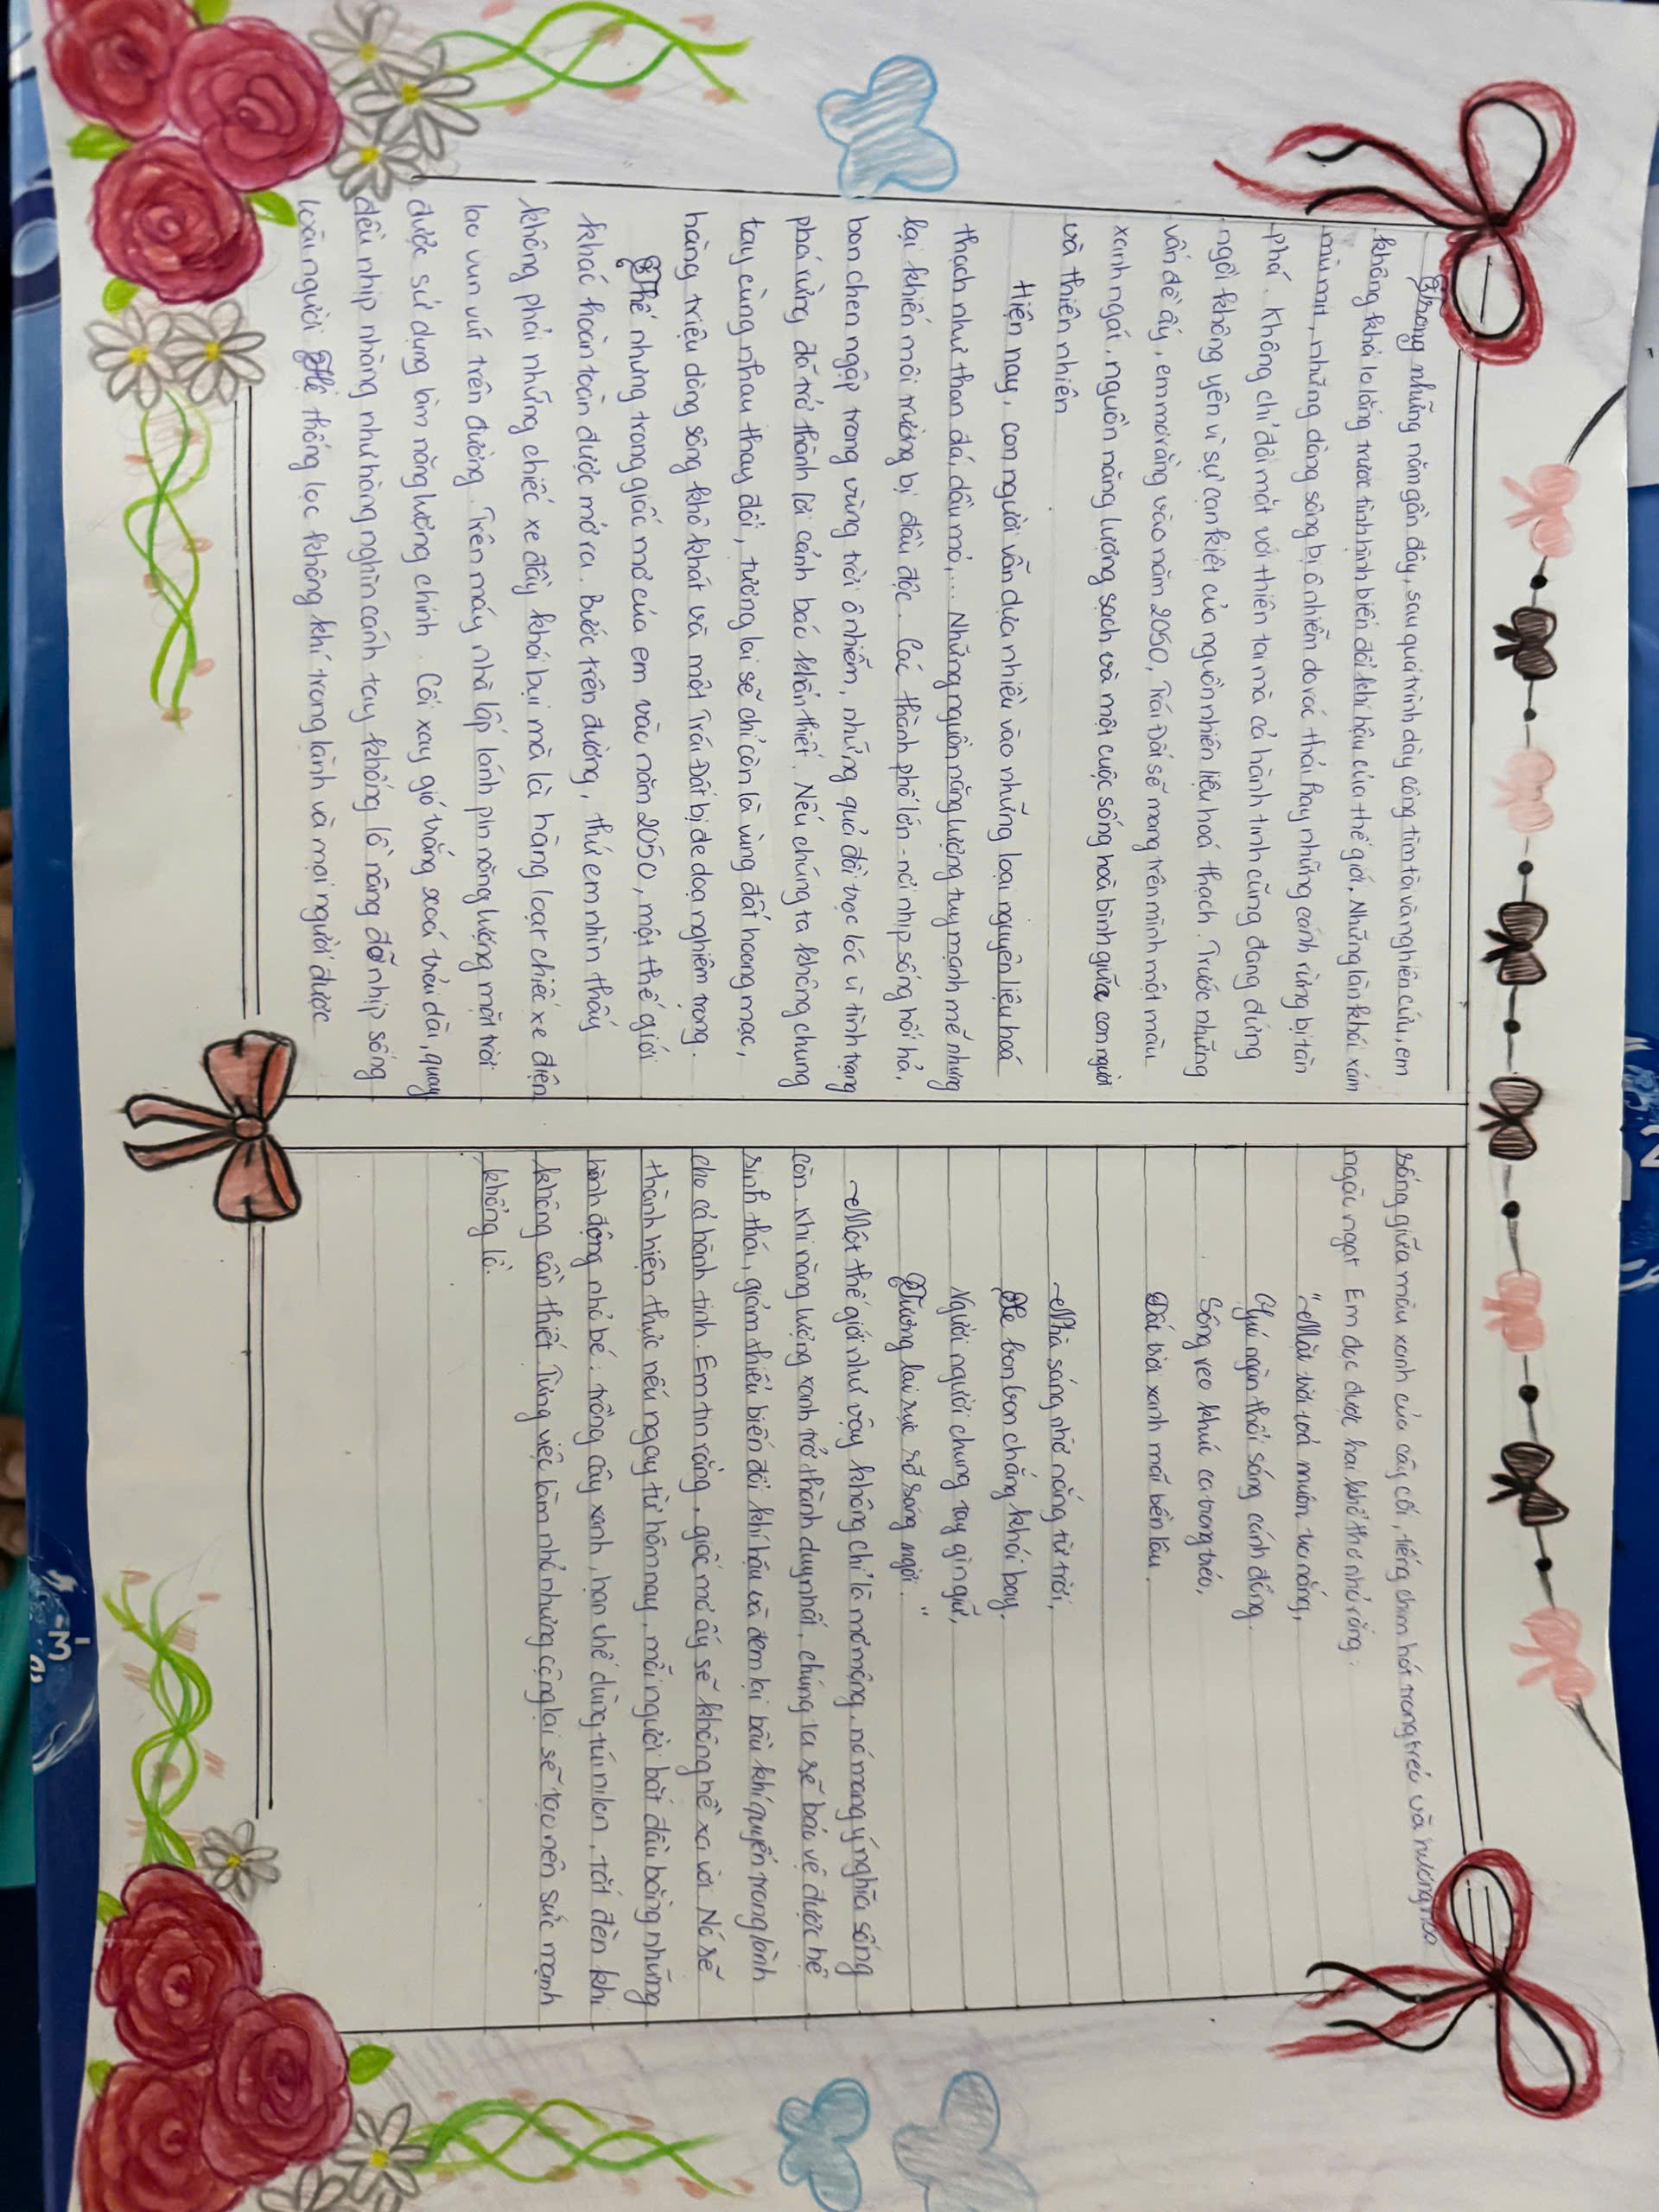 Trong những năm gần đây, sau quá trình dày công tìm tòi và nghiên cứu, em
không khỏi lo lắng trước tình hình biến đổi khí hậu của thế giới. Những làn khói xám
mù mịt, những dòng sông bị ô nhiễm do rác thải hay những cánh rừng bị tàn
phá. Không chỉ đối mặt với thiên tai mà cả hành tinh cũng đang đứng
ngồi không yên vì sự cạn kiệt của nguồn nhiên liệu hoá thạch. Trước những
vấn đề ấy, em mơ rằng vào năm 2050, Trái Đất sẽ mang trên mình một màu
xanh ngát, nguồn năng lượng sạch và một cuộc sống hoà bình giữa con người
và thiên nhiên
Hiện nay, con người vẫn dựa nhiều vào những loại nguyên liệu hoá
thạch như than đá, dầu mỏ,... Những nguồn năng lượng tuy mạnh mẽ nhưng
lại khiến môi trường bị đầu độc. Các thành phố lớn - nơi nhịp sống hối hả,
bon chen ngập trong vùng trời ô nhiễm, những quả đồi trọc lóc vì tình trạng
phá rừng đã trở thành lời cảnh báo khẩn thiết. Nếu chúng ta không chung
tay cùng nhau thay đổi, tương lai sẽ chỉ còn là vùng đất hoang mạc,
hàng triệu dòng sông khô khát và một Trái Đất bị đe doạ nghiêm trọng.
Thế nhưng trong giấc mơ của em vào năm 2050, một thế giới
khác hoàn toàn được mở ra. Bước trên đường, thứ em nhìn thấy
không phải những chiếc xe đầy khói bụi mà là hàng loạt chiếc xe điện
lao vun vút trên đường. Trên máy nhà lấp lánh pin năng lượng mặt trời
được sử dụng làm năng lượng chính. Cối xay gió trắng xoá trải dài, quay
đều nhịp nhàng như hàng nghìn cánh tay khổng lồ nâng đỡ nhịp sống
loài người. Hệ thống lọc không khí trong lành và mọi người được
sống giữa màu xanh của cây cối, tiếng chim hót trong trẻo và hương hoa
ngào ngạt. Em đọc được hai khổ thơ nhỏ rằng:
"Mặt trời toả muôn tia nắng,
Gió ngàn thổi sáng cánh đồng.
Sông reo khúc ca trong trẻo,
Đất trời xanh mãi bền lâu.
Nhà sáng nhờ nắng từ trời,
Xe bon bon chẳng khói bay.
Người người chung tay gìn giữ,
Tương lai rực rỡ sáng ngời."
Một thế giới như vậy không chỉ là mơ mộng, nó mang ý nghĩa sống
còn. Khi năng lượng xanh trở thành duy nhất, chúng ta sẽ bảo vệ được hệ
sinh thái, giảm thiểu biến đổi khí hậu và đem lại bầu khí quyển trong lành
cho cả hành tinh. Em tin rằng, giấc mơ ấy sẽ không hề xa vời. Nó sẽ
thành hiện thực nếu ngay từ hôm nay, mỗi người bắt đầu bằng những
hành động nhỏ bé: trồng cây xanh, hạn chế dùng túi nilon, tắt đèn khi
không cần thiết. Từng việc làm nhỏ nhưng cộng lại sẽ tạo nên sức mạnh
khổng lồ.